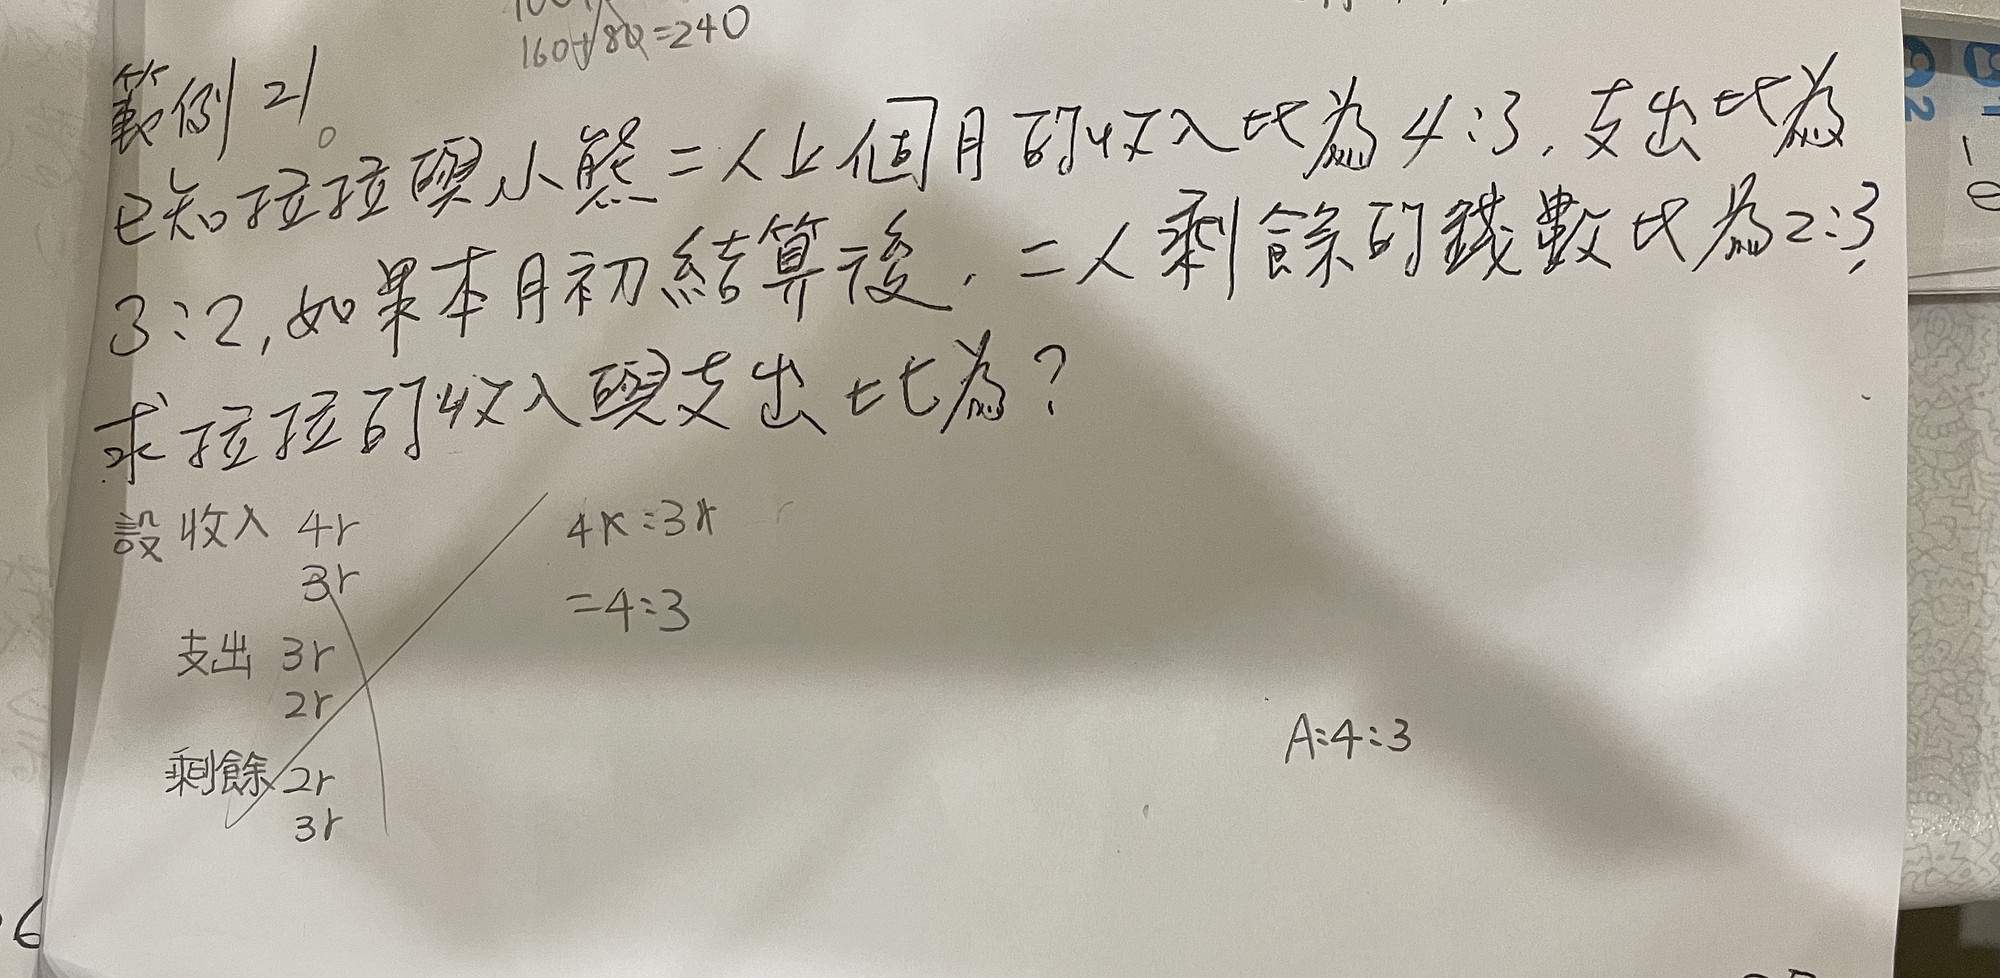 160+80=240
範例21。
已知拉拉與小熊二人上個月的收入比為4:3,支出比為
3:2,如果本月初結算後,二人剩餘的錢數比為2:3,
求拉拉的收入與支出比為?
設 收入 4r 4r:3r
3r
=4:3
支出 3r
2r
A:4:3
剩餘 2r
3r